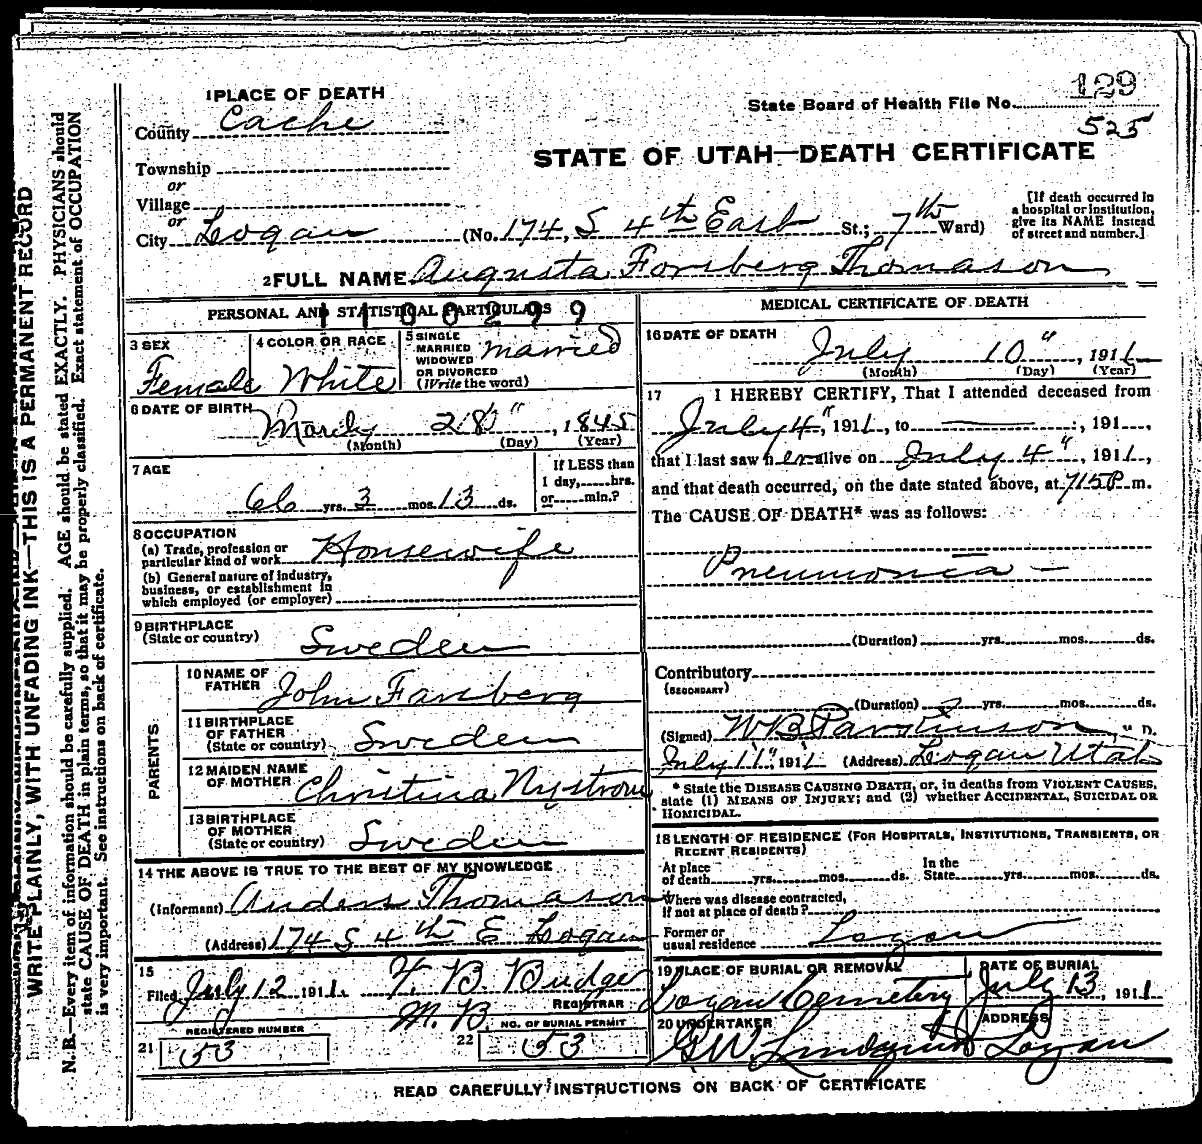 129
1 PLACE OF DEATH
State Board of Health File No.
County Cache
525
STATE OF UTAH—DEATH CERTIFICATE
Township
or
Village
or
City Logan (No. 174, S 4th East St.; 7th Ward)
[If death occurred in a hospital or institution, give its NAME instead of street and number.]
2 FULL NAME Augusta Forsberg Thomason
PERSONAL AND STATISTICAL PARTICULARS
1100299
3 SEX
Female
4 COLOR OR RACE
White
5 SINGLE
MARRIED
WIDOWED
OR DIVORCED
(Write the word)
married
6 DATE OF BIRTH
March 28", 1845
(Month) (Day) (Year)
7 AGE
66 yrs. 3 mos. 13 ds.
If LESS than
1 day,.....hrs.
or.....min.?
8 OCCUPATION
(a) Trade, profession or
particular kind of work Housewife
(b) General nature of industry,
business, or establishment in
which employed (or employer)
9 BIRTHPLACE
(State or country)
Sweden
PARENTS
10 NAME OF
FATHER
John Forsberg
11 BIRTHPLACE
OF FATHER
(State or country)
Sweden
12 MAIDEN NAME
OF MOTHER
Christina Nystrom
13 BIRTHPLACE
OF MOTHER
(State or country)
Sweden
14 THE ABOVE IS TRUE TO THE BEST OF MY KNOWLEDGE
(Informant) Anders Thomason
(Address) 174 S 4th E Logan
15
Filed July 12 1911.
REGISTRAR
M.D.
REGISTERED NUMBER
21 53
22 NO. OF BURIAL PERMIT
53
MEDICAL CERTIFICATE OF DEATH
16 DATE OF DEATH
July 10", 1911
(Month) (Day) (Year)
17 I HEREBY CERTIFY, That I attended deceased from
July 4", 1911, to ——, 191...,
that I last saw h er alive on July 4", 1911,
and that death occurred, on the date stated above, at 715P m.
The CAUSE OF DEATH* was as follows:
Pneumonia —
(Duration) yrs. mos. ds.
Contributory
(SECONDARY)
(Duration) yrs. mos. ds.
(Signed) W B Parkinson, M. D.
July 11", 1911 (Address) Logan Utah
* State the DISEASE CAUSING DEATH, or, in deaths from VIOLENT CAUSES,
state (1) MEANS OF INJURY; and (2) whether ACCIDENTAL, SUICIDAL OR
HOMICIDAL.
18 LENGTH OF RESIDENCE (FOR HOSPITALS, INSTITUTIONS, TRANSIENTS, OR
RECENT RESIDENTS)
At place
of death yrs. mos. ds.
In the
State yrs. mos. ds.
Where was disease contracted,
if not at place of death?
Former or
usual residence Logan
19 PLACE OF BURIAL OR REMOVAL
Logan Cemetery
DATE OF BURIAL
July 13, 1911
20 UNDERTAKER
G W Lindquist
ADDRESS
Logan
READ CAREFULLY INSTRUCTIONS ON BACK OF CERTIFICATE
WRITE PLAINLY, WITH UNFADING INK—THIS IS A PERMANENT RECORD
N. B.—Every item of information should be carefully supplied. AGE should be stated EXACTLY. PHYSICIANS should
state CAUSE OF DEATH in plain terms, so that it may be properly classified. Exact statement of OCCUPATION
is very important. See instructions on back of certificate.